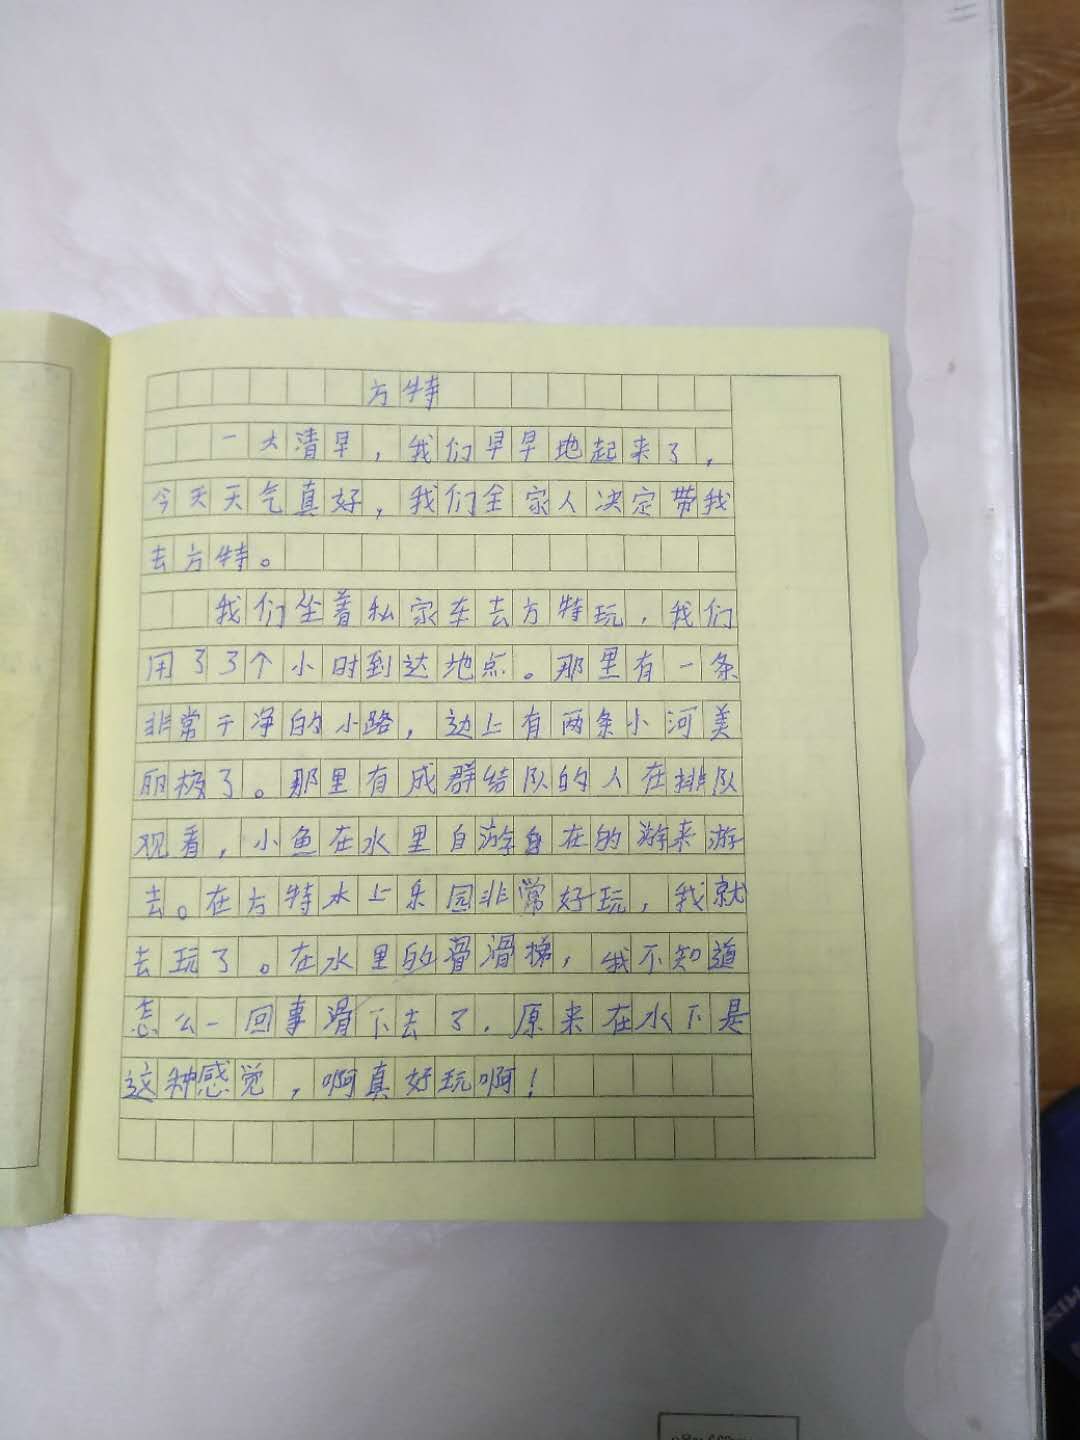 方特
一大清早，我们早早地起来了，
今天天气真好，我们全家人决定带我
去方特。
我们坐着私家车去方特玩，我们
用了3个小时到达地点。那里有一条
非常干净的小路，边上有两条小河美
丽极了。那里有成群结队的人在排队
观看，小鱼在水里自游自在的游来游
去。在方特水上乐园非常好玩，我就
去玩了。在水里的滑滑梯，我不知道
怎么一回事滑下去了，原来在水下是
这种感觉，啊真好玩啊！